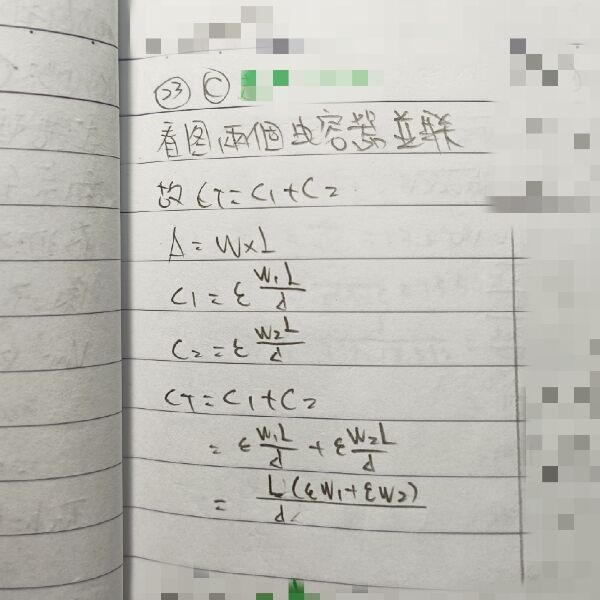 ㉓ Ⓒ
看图兩個电容器並联
故 CT = C1 + C2
A = W×L
C1 = ε W1L/d
C2 = ε W2L/d
CT = C1 + C2
= ε W1L/d + ε W2L/d
= L(εW1 + εW2)/d